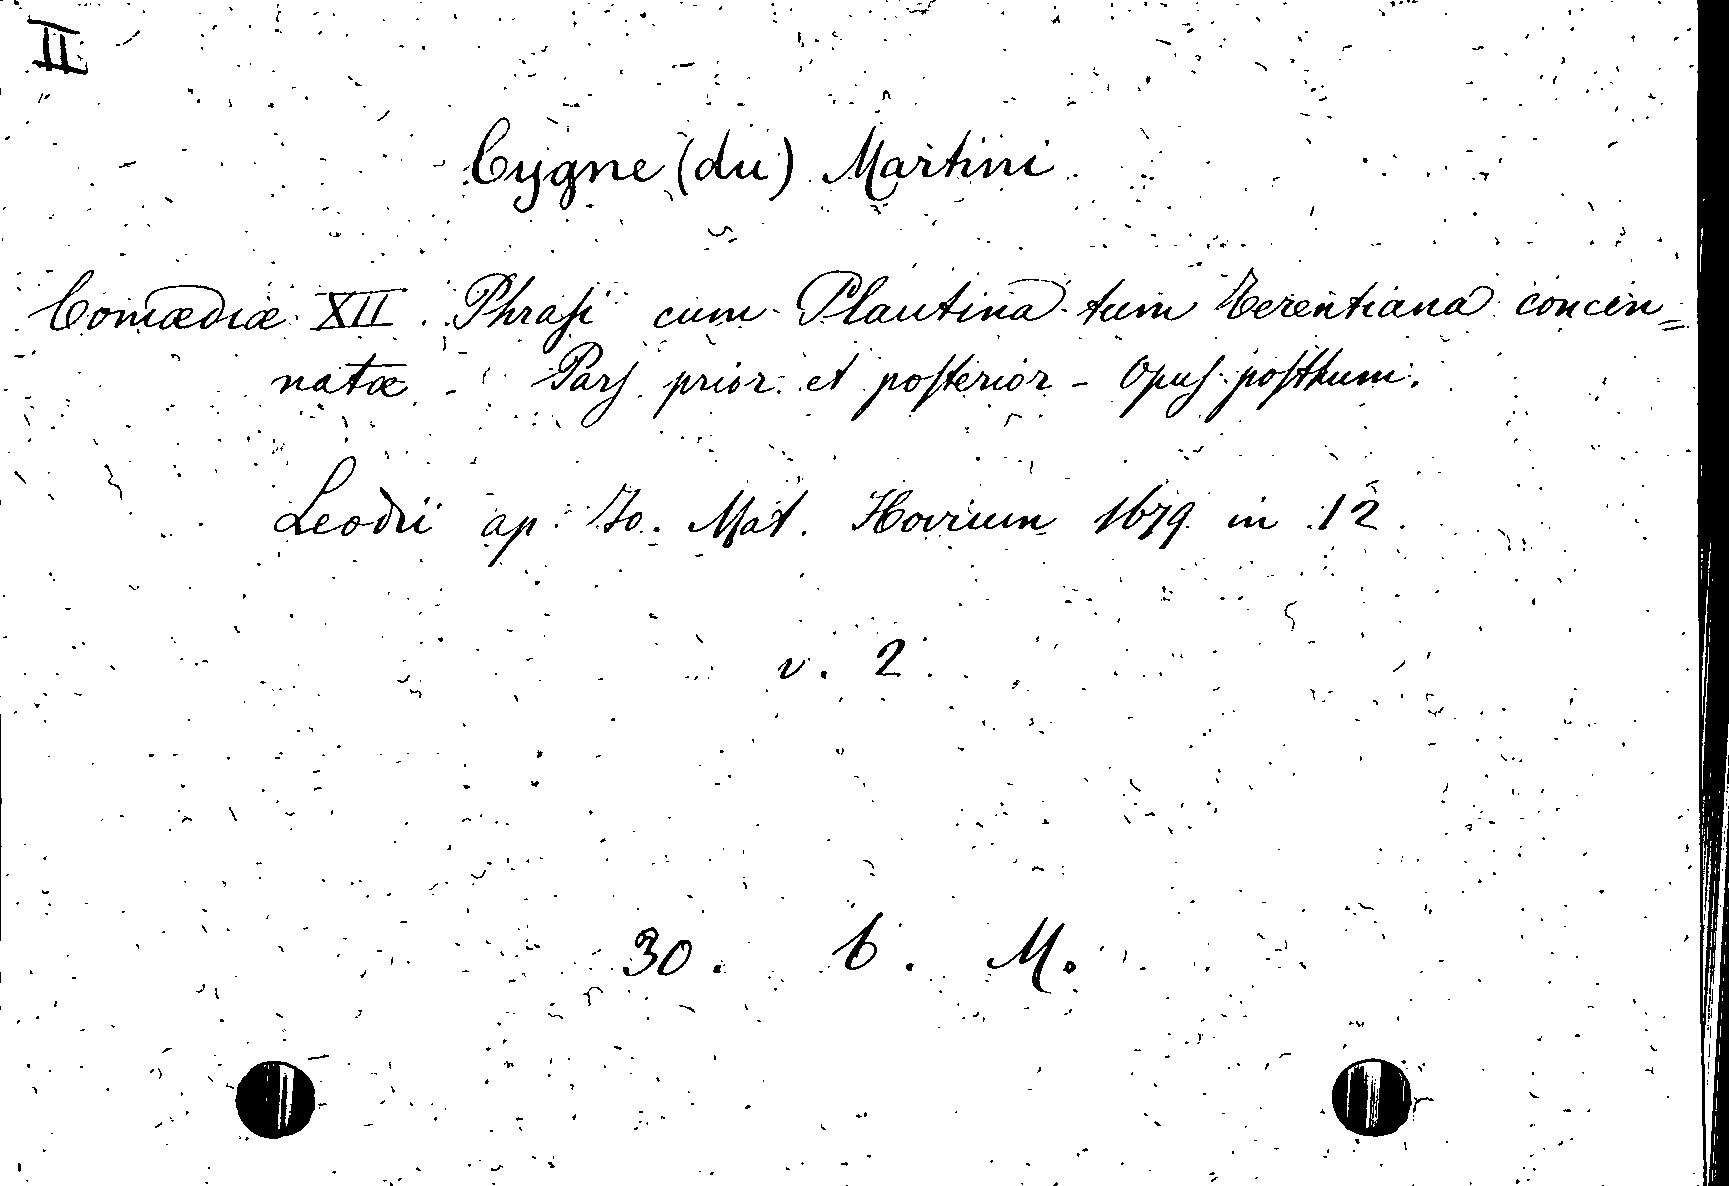 II
Cygne (du) Martini
Comœdiæ XII. Phrasi cum Plautina tum Terentiana concin=
natæ - Pars prior et posterior - Opus posthum.
Leodii ap. Jo. Mat. Hovium 1679 in 12.
v. 2.
30. 6. M.